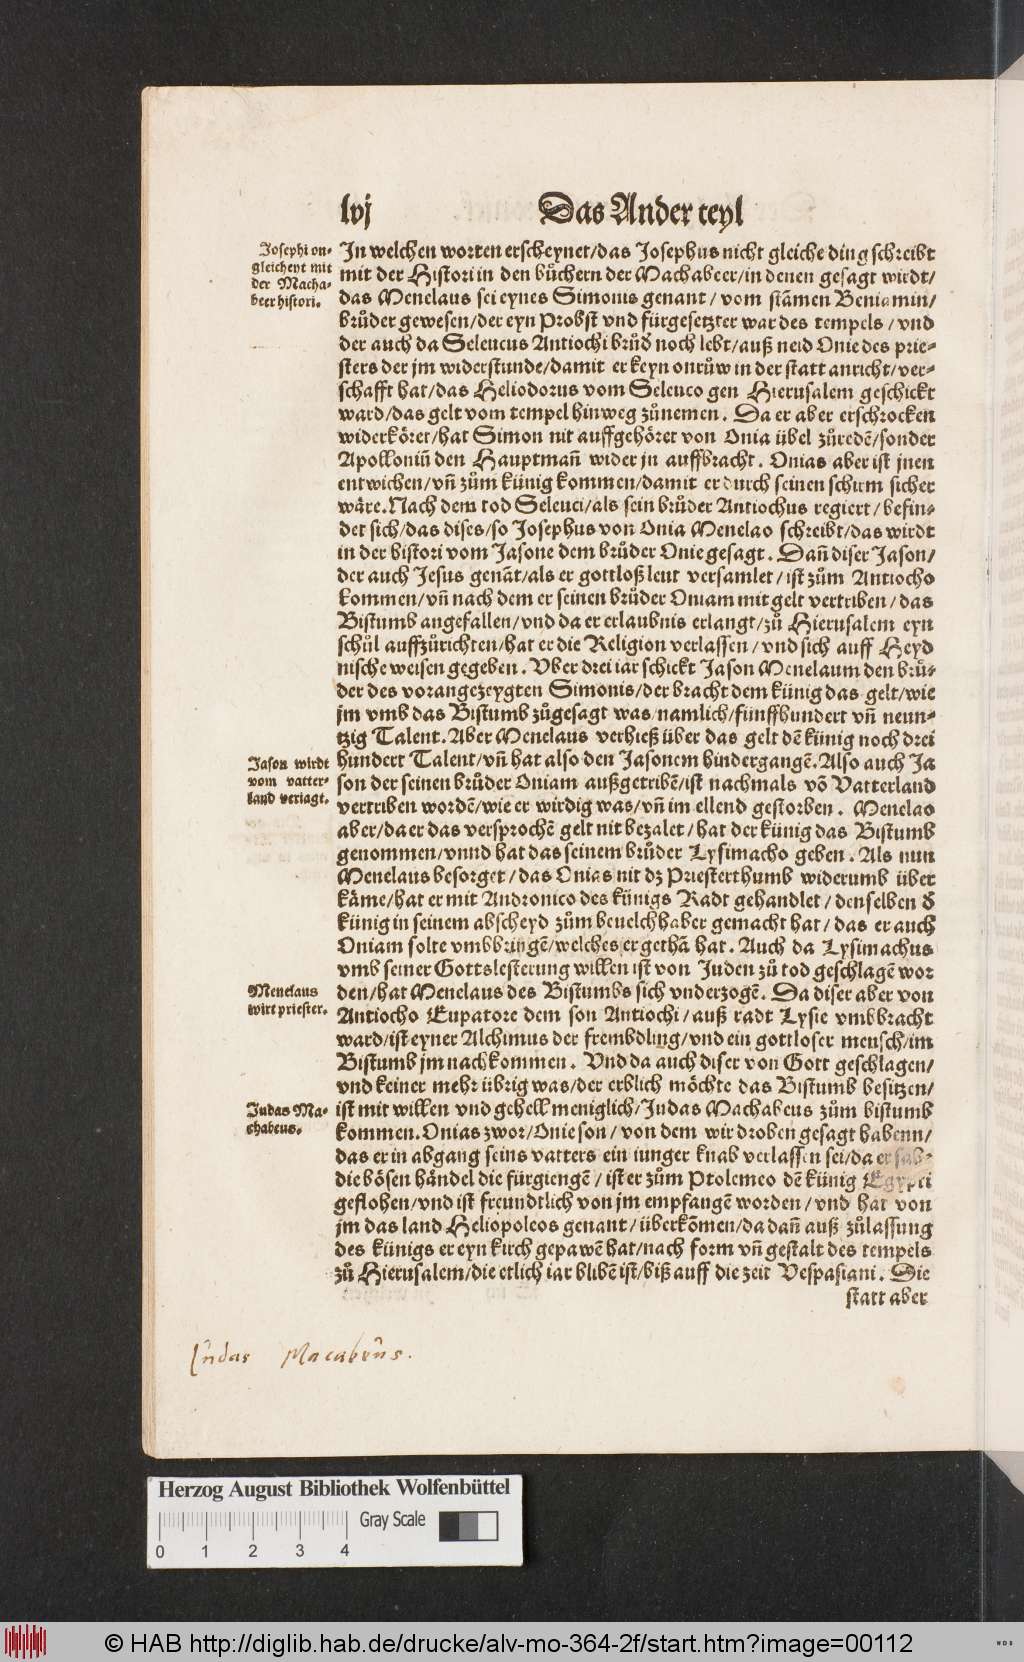 lvj Das Ander teyl
Josephi on-
gleicheyt mit
der Macha-
beer histori.
In welchen worten erscheynet/das Josephus nicht gleiche ding schreibt
mit der Histori in den bůchern der Machabeer/in denen gesagt wirdt/
das Menelaus sei eynes Simonis genant/vom stāmen Beniamin/
brůder gewesen/der eyn Probst vnd fürgesetzter war des tempels/vnd
der auch da Seleucus Antiochi brůd noch lebt/auß neid Onie des prie-
sters der jm widerstunde/damit er keyn onrůw in der statt anricht/ver-
schafft hat/das Heliodorus vom Seleuco gen Hierusalem geschickt
ward/das gelt vom tempel hinweg zůnemen. Da er aber erschrocken
widerköret/hat Simon nit auffgehöret von Onia übel zůredē/sonder
Apolloniū den Hauptmañ wider jn auffbracht. Onias aber ist jnen
entwichen/vñ zům künig kommen/damit er durch seinen schirm sicher
wäre. Nach dem tod Seleuci/als sein brůder Antiochus regiert/befin-
det sich/das dises/so Josephus von Onia Menelao schreibt/das wirdt
in der histori vom Jasone dem brůder Onie gesagt. Dañ diser Jason/
der auch Jesus genāt/als er gottloß leut versamlet/ist zům Antiocho
kommen/vñ nach dem er seinen brůder Oniam mit gelt vertriben/das
Bistumb angefallen/vnd da er erlaubnis erlangt/zů Hierusalem eyn
schůl auffzůrichten/hat er die Religion verlassen/vnd sich auff Heyd
nische weisen gegeben. Vber drei iar schickt Jason Menelaum den brů-
der des vorangezeygten Simonis/der bracht dem künig das gelt/wie
jm vmb das Bistumb zůgesagt was/namlich/fünffhundert vñ neun-
tzig Talent. Aber Menelaus verhieß über das gelt dē künig noch drei
Jason wirdt
vom vatter-
land veriagt.
hundert Talent/vñ hat also den Jasonem hindergangē. Also auch Ja
son der seinen brůder Oniam außgetribē/ist nachmals vō Vatterland
vertriben wordē/wie er wirdig was/vñ im ellend gestorben. Menelao
aber/da er das versprochē gelt nit bezalet/hat der künig das Bistumb
genommen/vnnd hat das seinem brůder Lysimacho geben. Als nun
Menelaus besorget/das Onias nit dz Priesterthumb widerumb über
käme/hat er mit Andronico des künigs Radt gehandlet/denselben d̕
künig in seinem abscheyd zům beuelchhaber gemacht hat/das er auch
Oniam solte vmbbringē/welches er gethā hat. Auch da Lysimachus
vmb seiner Gottslesterung willen ist von Juden zů tod geschlagē wor
Menelaus
wirt priester.
den/hat Menelaus des Bistumbs sich vnderzogē. Da diser aber von
Antiocho Eupatore dem son Antiochi/auß radt Lysie vmbbracht
ward/ist eyner Alchimus der frembdling/vnd ein gottloser mensch/im
Bistumb jm nachkommen. Vnd da auch diser von Gott geschlagen/
vnd keiner mehr übrig was/der erblich möchte das Bistumb besitzen/
Judas Ma-
chabeus.
ist mit willen vnd gehell meniglich/Judas Machabeus zům bistumb
kommen. Onias zwor/Onie son/von dem wir droben gesagt habenn/
das er in abgang seins vatters ein iunger knab verlassen sei/da er sah
die bösen händel die fürgiengē/ist er zům Ptolemeo dē künig Egypti
geflohen/vnd ist freundtlich von jm empfangē worden/vnd hat von
jm das land Heliopoleos genant/überkōmen/da dañ auß zůlassung
des künigs er eyn kirch gepawē hat/nach form vñ gestalt des tempels
zů Hierusalem/die etlich iar blibē ist/biß auff die zeit Vespasiani. Die
statt aber
Judas Macabeus.
Herzog August Bibliothek Wolfenbüttel
Gray Scale
0 1 2 3 4
© HAB http://diglib.hab.de/drucke/alv-mo-364-2f/start.htm?image=00112